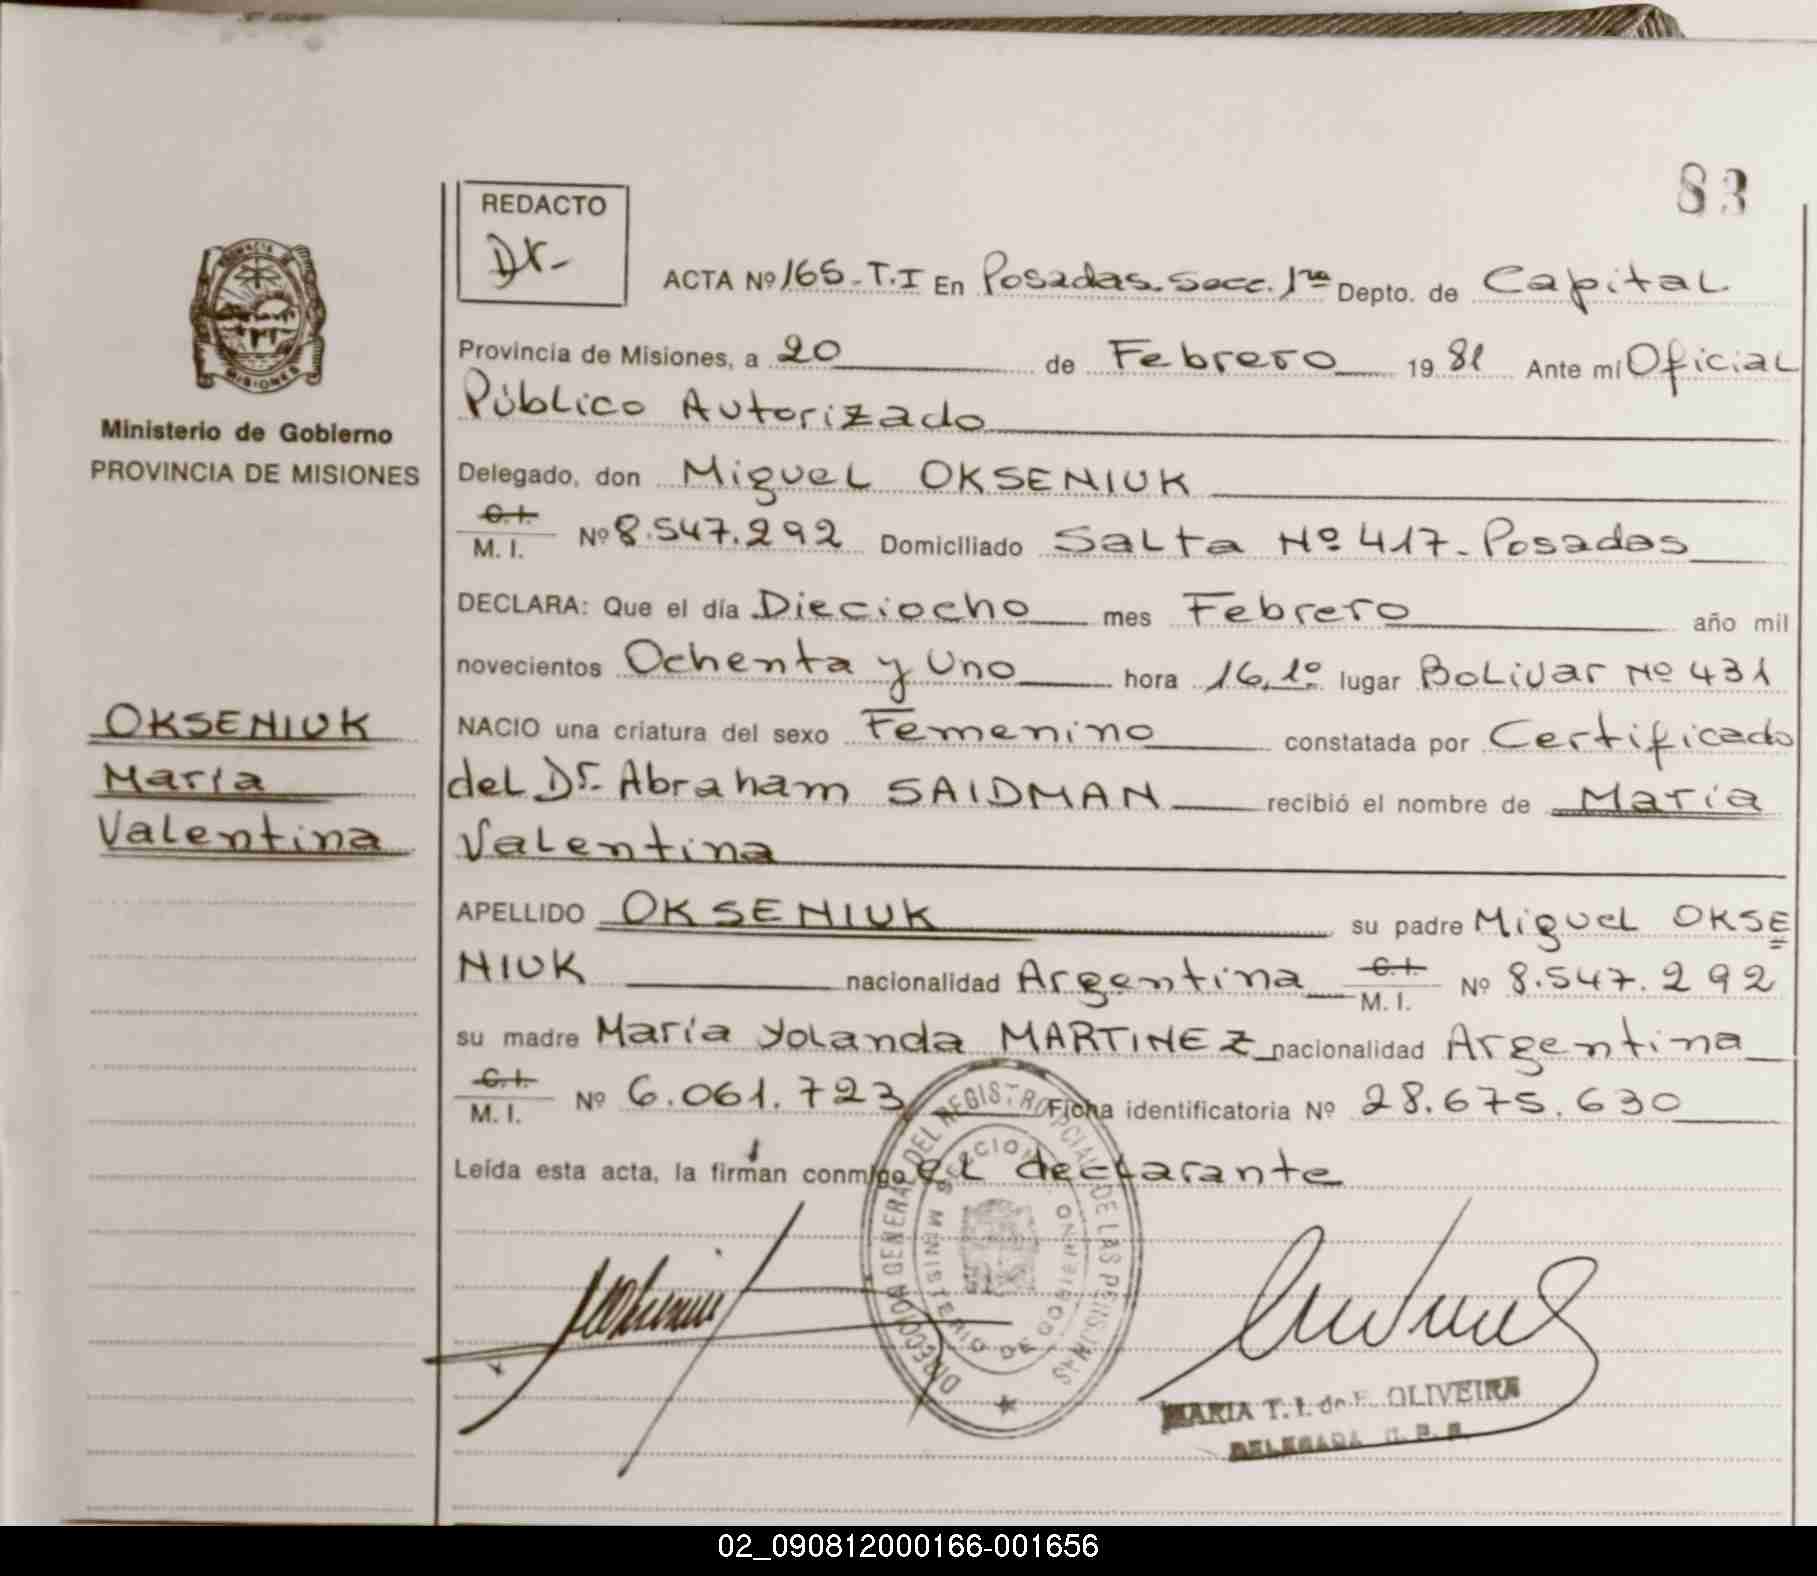 83
REDACTO
Dr-
ACTA Nº 165-T.I En Posadas.Secc.1ra Depto. de Capital
Provincia de Misiones, a 20 de Febrero 19 81 Ante mí Oficial
Público Autorizado
Ministerio de Gobierno
PROVINCIA DE MISIONES
Delegado, don Miguel OKSENIUK
C.I.
M. I. Nº 8.547.292 Domiciliado Salta Nº 417. Posadas
DECLARA: Que el día Dieciocho mes Febrero año mil
novecientos Ochenta y Uno hora 16,1º lugar Bolivar Nº 431
OKSENIUK
María
Valentina
NACIO una criatura del sexo Femenino constatada por Certificado
del Dr. Abraham SAIDMAN recibió el nombre de María
Valentina
APELLIDO OKSENIUK su padre Miguel OKSE
NIUK nacionalidad Argentina C.I. M. I. Nº 8.547.292
su madre María Yolanda MARTINEZ nacionalidad Argentina
C.I.
M. I. Nº 6.061.723 Ficha identificatoria Nº 28.675.630
Leída esta acta, la firman conmigo el declarante
DIRECCION GENERAL DEL REGISTRO PCIAL. DE LAS PERSONAS
SECCION
MINISTERIO DE GOBIERNO
MARIA T. I. de F. OLIVEIRA
DELEGADA
MISIONES
02_090812000166-001656